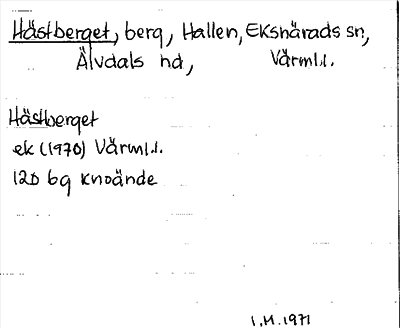 Hästberget, berg, Hallen, Ekshärads sn,
Älvdals hd, Värml.l.
Hästberget
ek (1970) Värml.l.
12D 6g Knoände
I.M. 1971